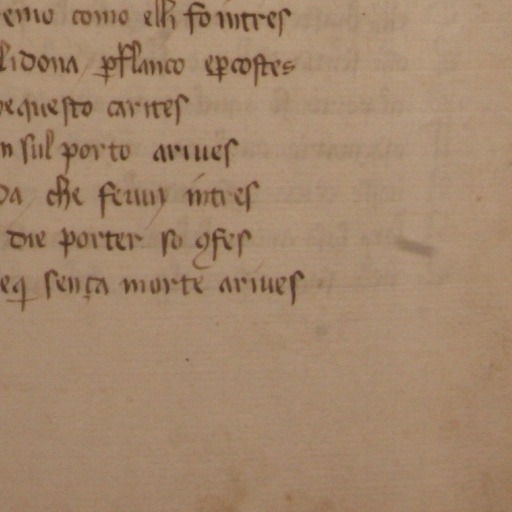 como elli fo intres
lidona ꝑ flanco eꝑ costes
questo carites
n sul porto ariues
da che feuuy intres
die porter so ꝯfes
sença morte ariues